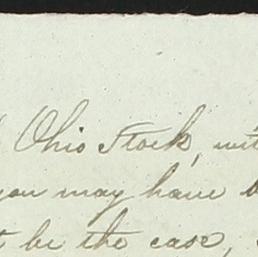 Ohio Stock, wit
you may have
t be the case,